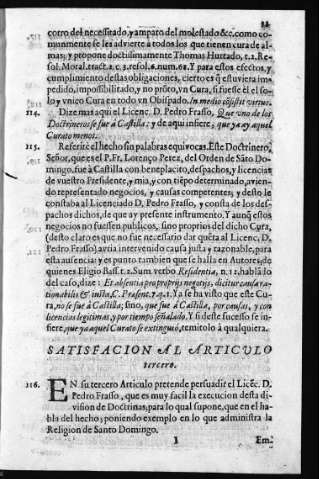 32
cotro del necessitado, y amparo del molestado &c. como co-
munmente se les advierte a todos los que tienen cura de al-
mas; y propone doctissimamente Thomas Hurtado, t. 2. Re-
sol. Moral. tract. 2. c. 3. resol. 6. num. 62. Y para estos efectos, y
cumplimiento destas obligaciones, cierto es q̃ estuviera im-
pedido, impossibilitado, y no prõto, vn Cura, si fuesse èl el so-
lo y vnico Cura en todo vn Obispado. In medio cōsistit virtus.
114. Dize mas aqui el Licenc. D. Pedro Frasso, Que vno de los
Doctrineros se fue à Castilla: y de aqui infiere, que ya ay aquel
Curato menos.
115. Referirè el hecho sin palabras equivocas. Este Doctrinero,
Señor, que es el P. Fr. Lorenço Perea, del Orden de Sãto Do-
mingo, fue à Castilla con beneplacito, despachos, y licencias
de vuestro Presidente, y mia, y con tiẽpo determinado, avien-
do representado negocios, y causas competentes; y desto le
constaba al Licenciado D. Pedro Frasso, y consta de los des-
pachos dichos, de que ay presente instrumento. Y aunq̃ estos
negocios no fuessen publicos, sino proprios del dicho Cura,
(desto claro es que no fue necessario dar quẽta al Licenc. D.
Pedro Frasso) avria intervenido causa justa y razonable, para
esta ausencia: y es punto tambien que se halla en Autores, de
quienes Eligio Bass. t. 2. Sum. verbo Residentia, n. 12. hablã lo
del caso, dize: Et absentia pro proprijs negotijs, dicitur causa ra-
tionabilis & iusta, C. Præsent. 7. q. 1. Ya se ha visto que este Cu-
ra, no se fue à Castilla; sino, que fue à Castilla, por causas, y con
licencias legitimas, y por tiempo señalado. Y si deste sucesso se in-
fiere, que ya aquel Curato se extinguiò, remitolo à qualquiera.
SATISFACION AL ARTICULO
tercero.
116. EN su tercero Articulo pretende persuadir el Licẽc. D.
Pedro Frasso, que es muy facil la execucion desta di
vision de Doctrinas, para lo qual supone, que en el ha-
bla del hecho; poniendo exemplo en lo que administra la
Religion de Santo Domingo.
I Em-